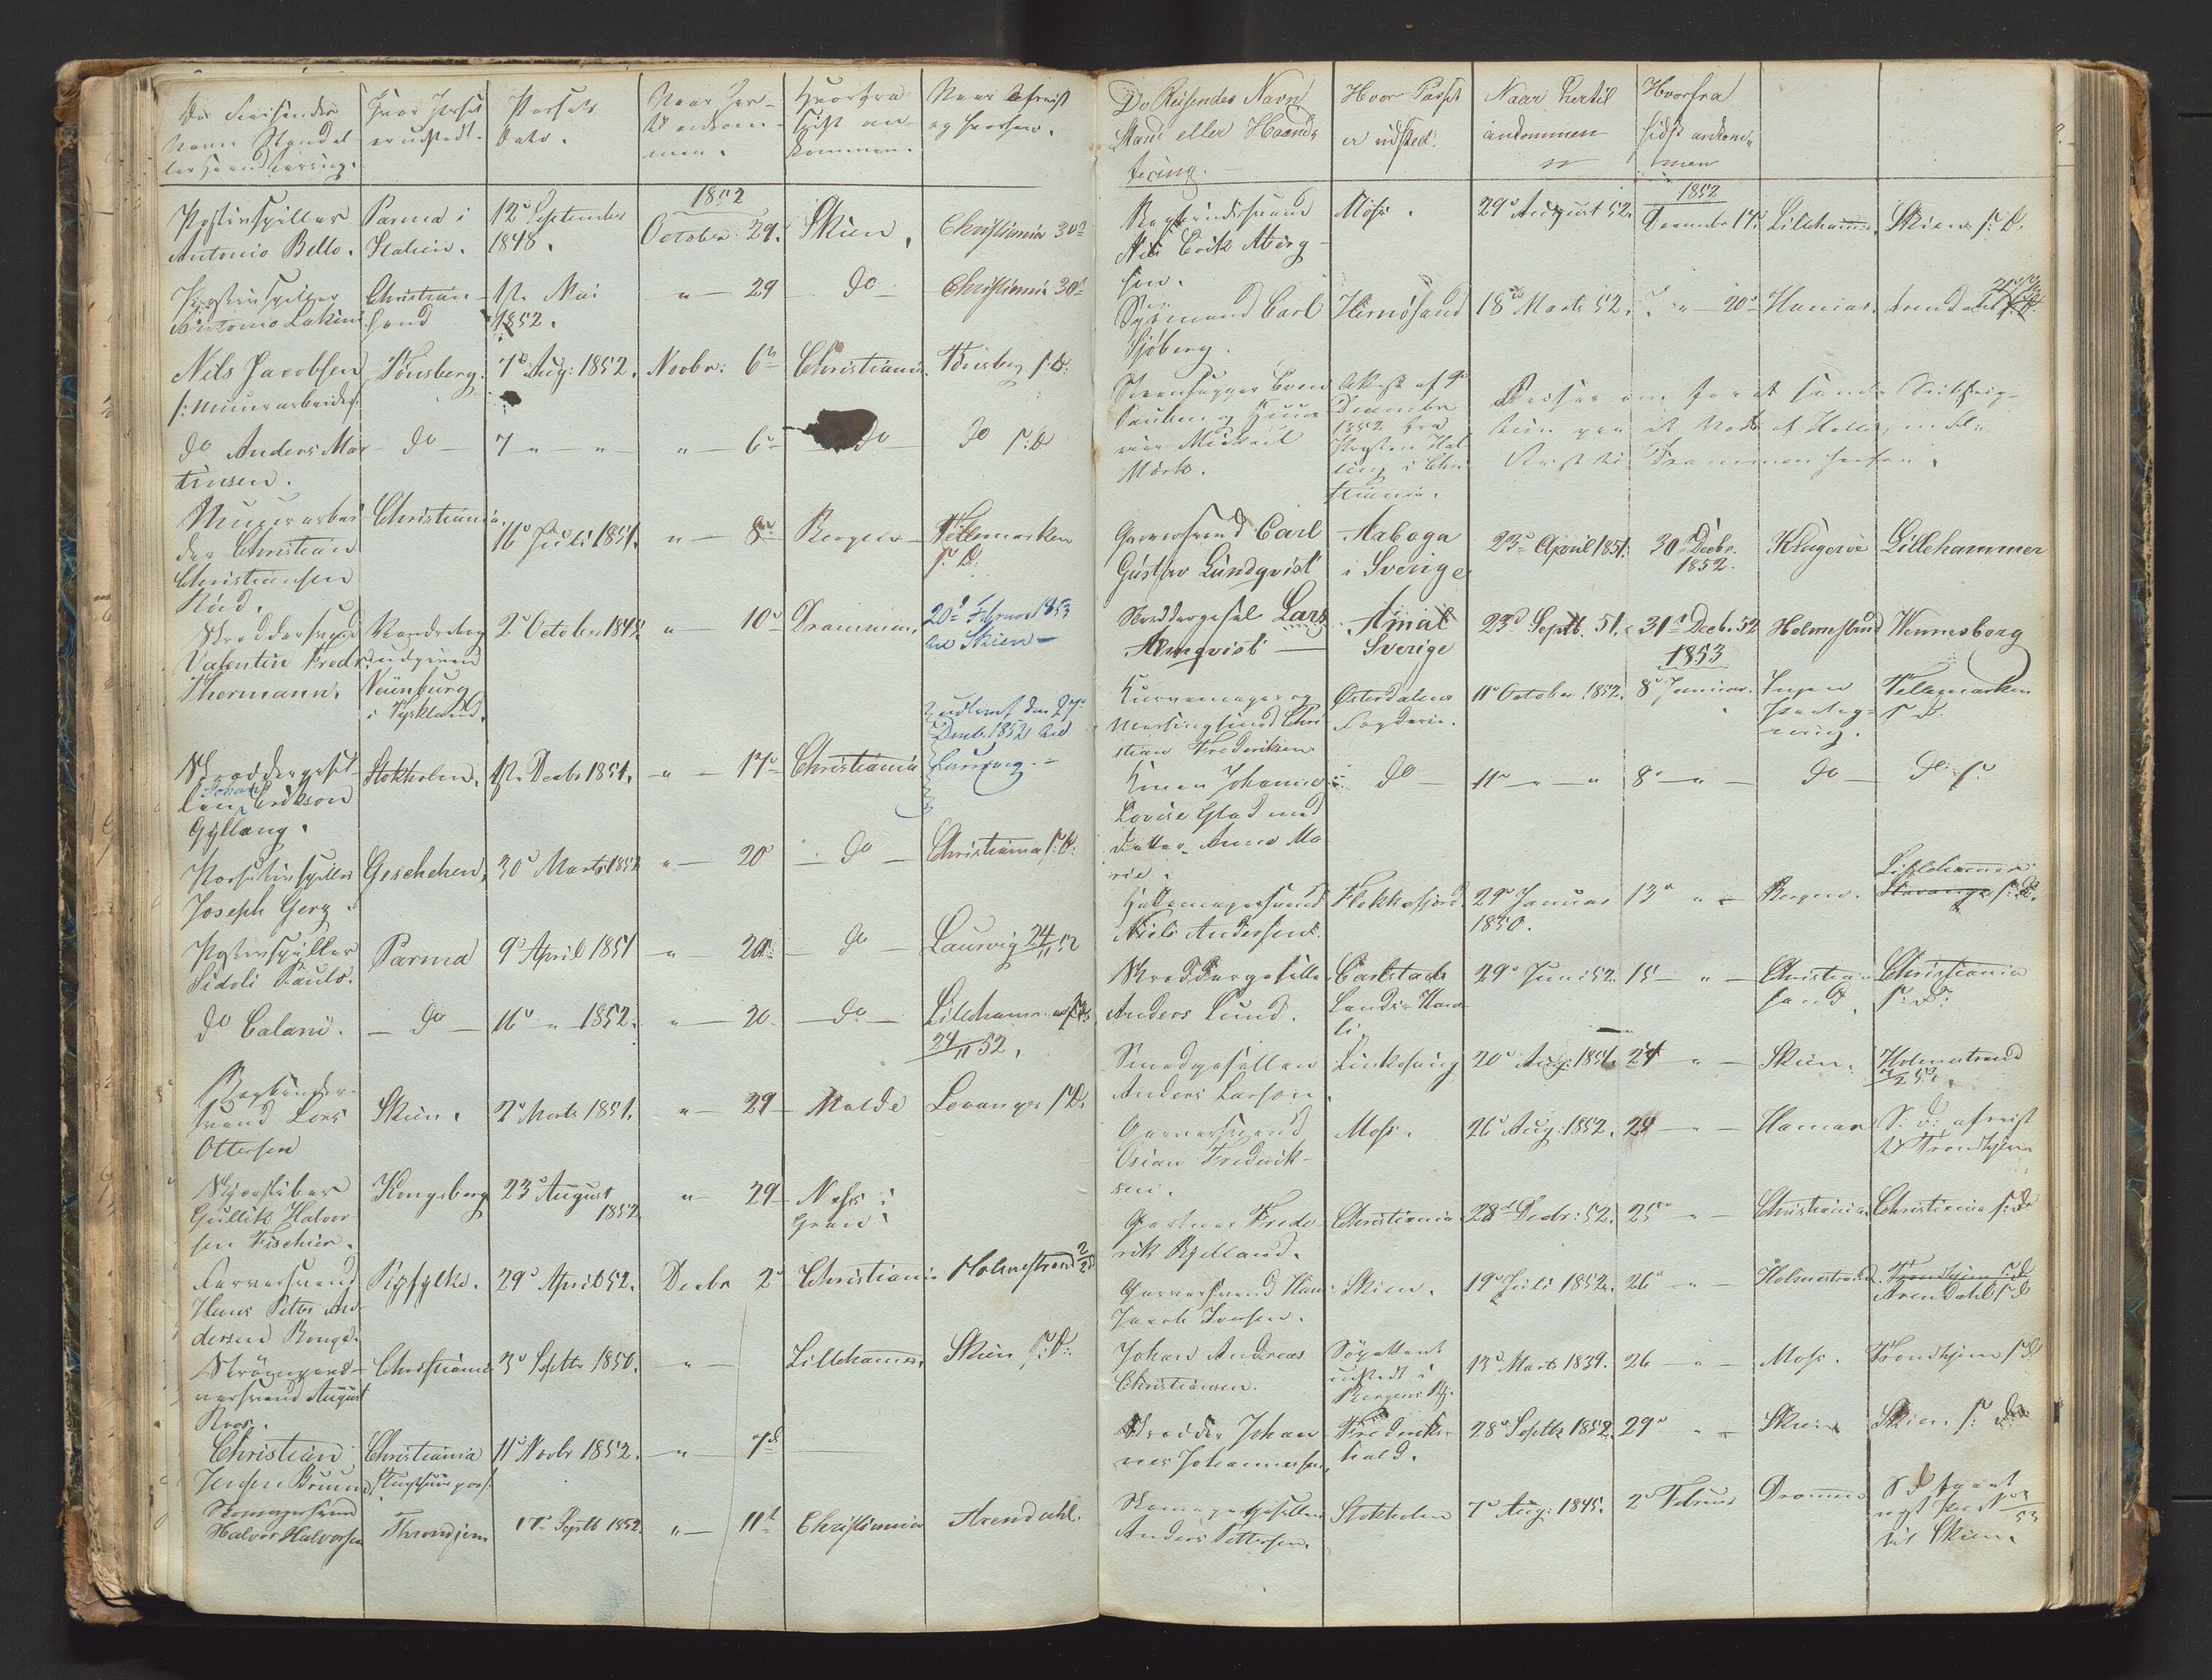 De Reisendes
Navn Stand el-
ler Haandtæring.
Hvor Passet
er udstedt.
Passets
Dato.
Naar her-
til ankom-
men.
Hvorfra
sidst an-
kommen.
Naar afreist
og hvorhen.
1852
Positivspiller
Antonio Bello.
Parma i
Italien.
12te September
1848.
October 29.
Skien,
Christiania 30te
Positivspiller
Antonio Lakini
Christian-
sand
1ste Mai
1852.
" — 29
do
Christiania 30te
Nils Jacobsen
/: Muurarbeider
Tönsberg.
7de Aug: 1852.
Novbr: 6te
Christiania.
Tönsberg s: D:
do Anders Mar-
tinsen.
do
7 — " — " —
" — 6te
do
do s: D
Muurarbei-
der Christian
Christiansen
Christiania.
16de Juli 1851.
" — 8de
Bergen
Tellemarken
s: D.
Skræddersvend
Valentin Fredr.
Thermann.
Vandrebog
udgiven
Neünburg
i Tyskland.
2de October 1848.
" — 10de
Drammen.
20de Februar 1853
til Skien —
Skræddersvend
Johan
Erikson
Gyllang.
Stokholm.
1ste Decbr 1851.
" — 17de
Christiania
udleveret den 27de
Decbr. 1852 til
Laurvig. —
Positivspiller
Joseph Gerz.
Geschehen,
30te Marts 1852
" — 20de
do
Christiania s: D:
Positivspiller
Sidoli Paulo.
Parma
9de April 1851
" — 20
do
Laurvig 24/11 52
do Calani.
do
16de " 1852.
" — 20
do
Lillehammer s: D.
24/11 52.
Bogbinder-
svend Lars
Ottersen
Skien.
2de Marts 1851.
" — 29
Molde
Levanger s: D.
Gullik Halvor
sen Fischier.
Kongsberg
23de August
1852
" 29
Næs i
Gran
Farversvend
Hans Petter An-
dersen Bougd.
Ryfylke.
29de April 52.
Decbr 2de
Christiania
Holmestrand
August
Roos.
Christiania
3de Septbr 1850.
" —
Lillehammer.
Skien s: D:
Christian
Jensen Bruun
Christiania
11te Novbr 1852.
" 7de
Skomagersvend
Halvor Halvorsen
Throndjem
17de Septb 1852.
" — 11te
Christiania
Arendahl.
De Reisendes Navn
Stand eller Haand-
tering.
Hvor Passet
er udsted.
Naar hertil
ankommen
Hvorfra
sidst ankom-
men
1852
Bogbindersvend
Nils Erik Aberg-
son.
Moss.
29de August 52.
December 14de
Lillehammer,
Skien s: D.
Sjømand Carl
Sjöberg.
Hernösand
18de Marts 52.
" — 20de
Hamar.
Arendahl
Steenhugger Even
Paulsen og
Mickael
Mörk.
Attest af 9de
December
1852 fra
i Chri-
stiania.
Reiser om for at
til Drammen herfra.
Garversvend Carl
Gustav Lundqvist
Arboga
i Sverige
23de April 1851.
30te Decbr.
1852.
Kragerøe
Lillehammer
Skræddergesel Lars
Almqvist
Åmål
Sverige
23de Septb. 51.
31te Decb. 52
Holmestrand
Wennesborg
1853
Kurvemager og
Chri-
stian Frederiksen
Østerdalens
Fogderie.
11te October 1852.
8de Januar.
Ingen
Paateg-
ning.
Tellemarken
s: D.
Konen Johanne
Lovise Glad med
Datter Anne Ma-
rie.
do
11te — " — "
8de — " —
do
do s:
Hattemagersvend
Niels Andersen.
Flekkefjord.
29de Januar
1850.
13de " —
Bergen.
Lillehammer
Stavanger s: D.
Skræddergeselle
Anders Lund.
Carlstads
29de Juni 52.
15 — " —
Christian-
sand.
Christiania
s: D:
Smedgesellen
Anders Larson.
Linkøping
20de Aug: 1851.
24 — " —
Skien.
Holmestrand
Garversvend
Osian Frederik-
sen.
Moss.
26de Aug: 1852.
24 — " —
Hamar
S: D: afreist
til Trondhjem
Gartner Frede-
rik Kjelland.
Christiania
28de Decbr: 52.
25de — " —
Christiania.
Christiania s: D:
Garversvend Hans
Jacob Iversen.
Skien.
19de Juli 1852.
26de — " —
Holmestrand.
Trondhjem s: D
Arendahl s: D
Johan Andreas
Christiansen.
Søpattent
udstedt i
Bergen
13de Marts 1839.
26 — " —
Moss.
Trondhjem s: D.
Skrædder Johan-
nes Johannessen.
Frederiks-
hald.
28de Septbr 1852.
29de " —
Skien
Skien s: D:
Skomagergesellen
Anders Pettersen.
Stokholm
7de Aug: 1845.
2de Februar
Drammen
til Skien.